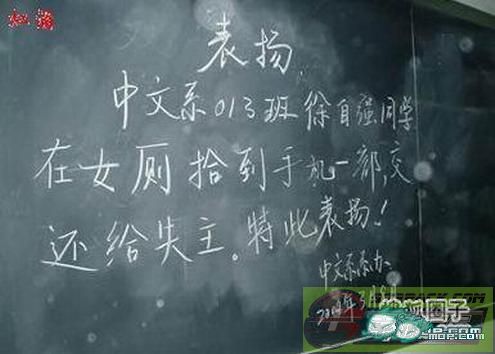 表扬
中文系013班徐自强同学
在女厕拾到手机一部,交
还给失主。特此表扬!
中文系系办